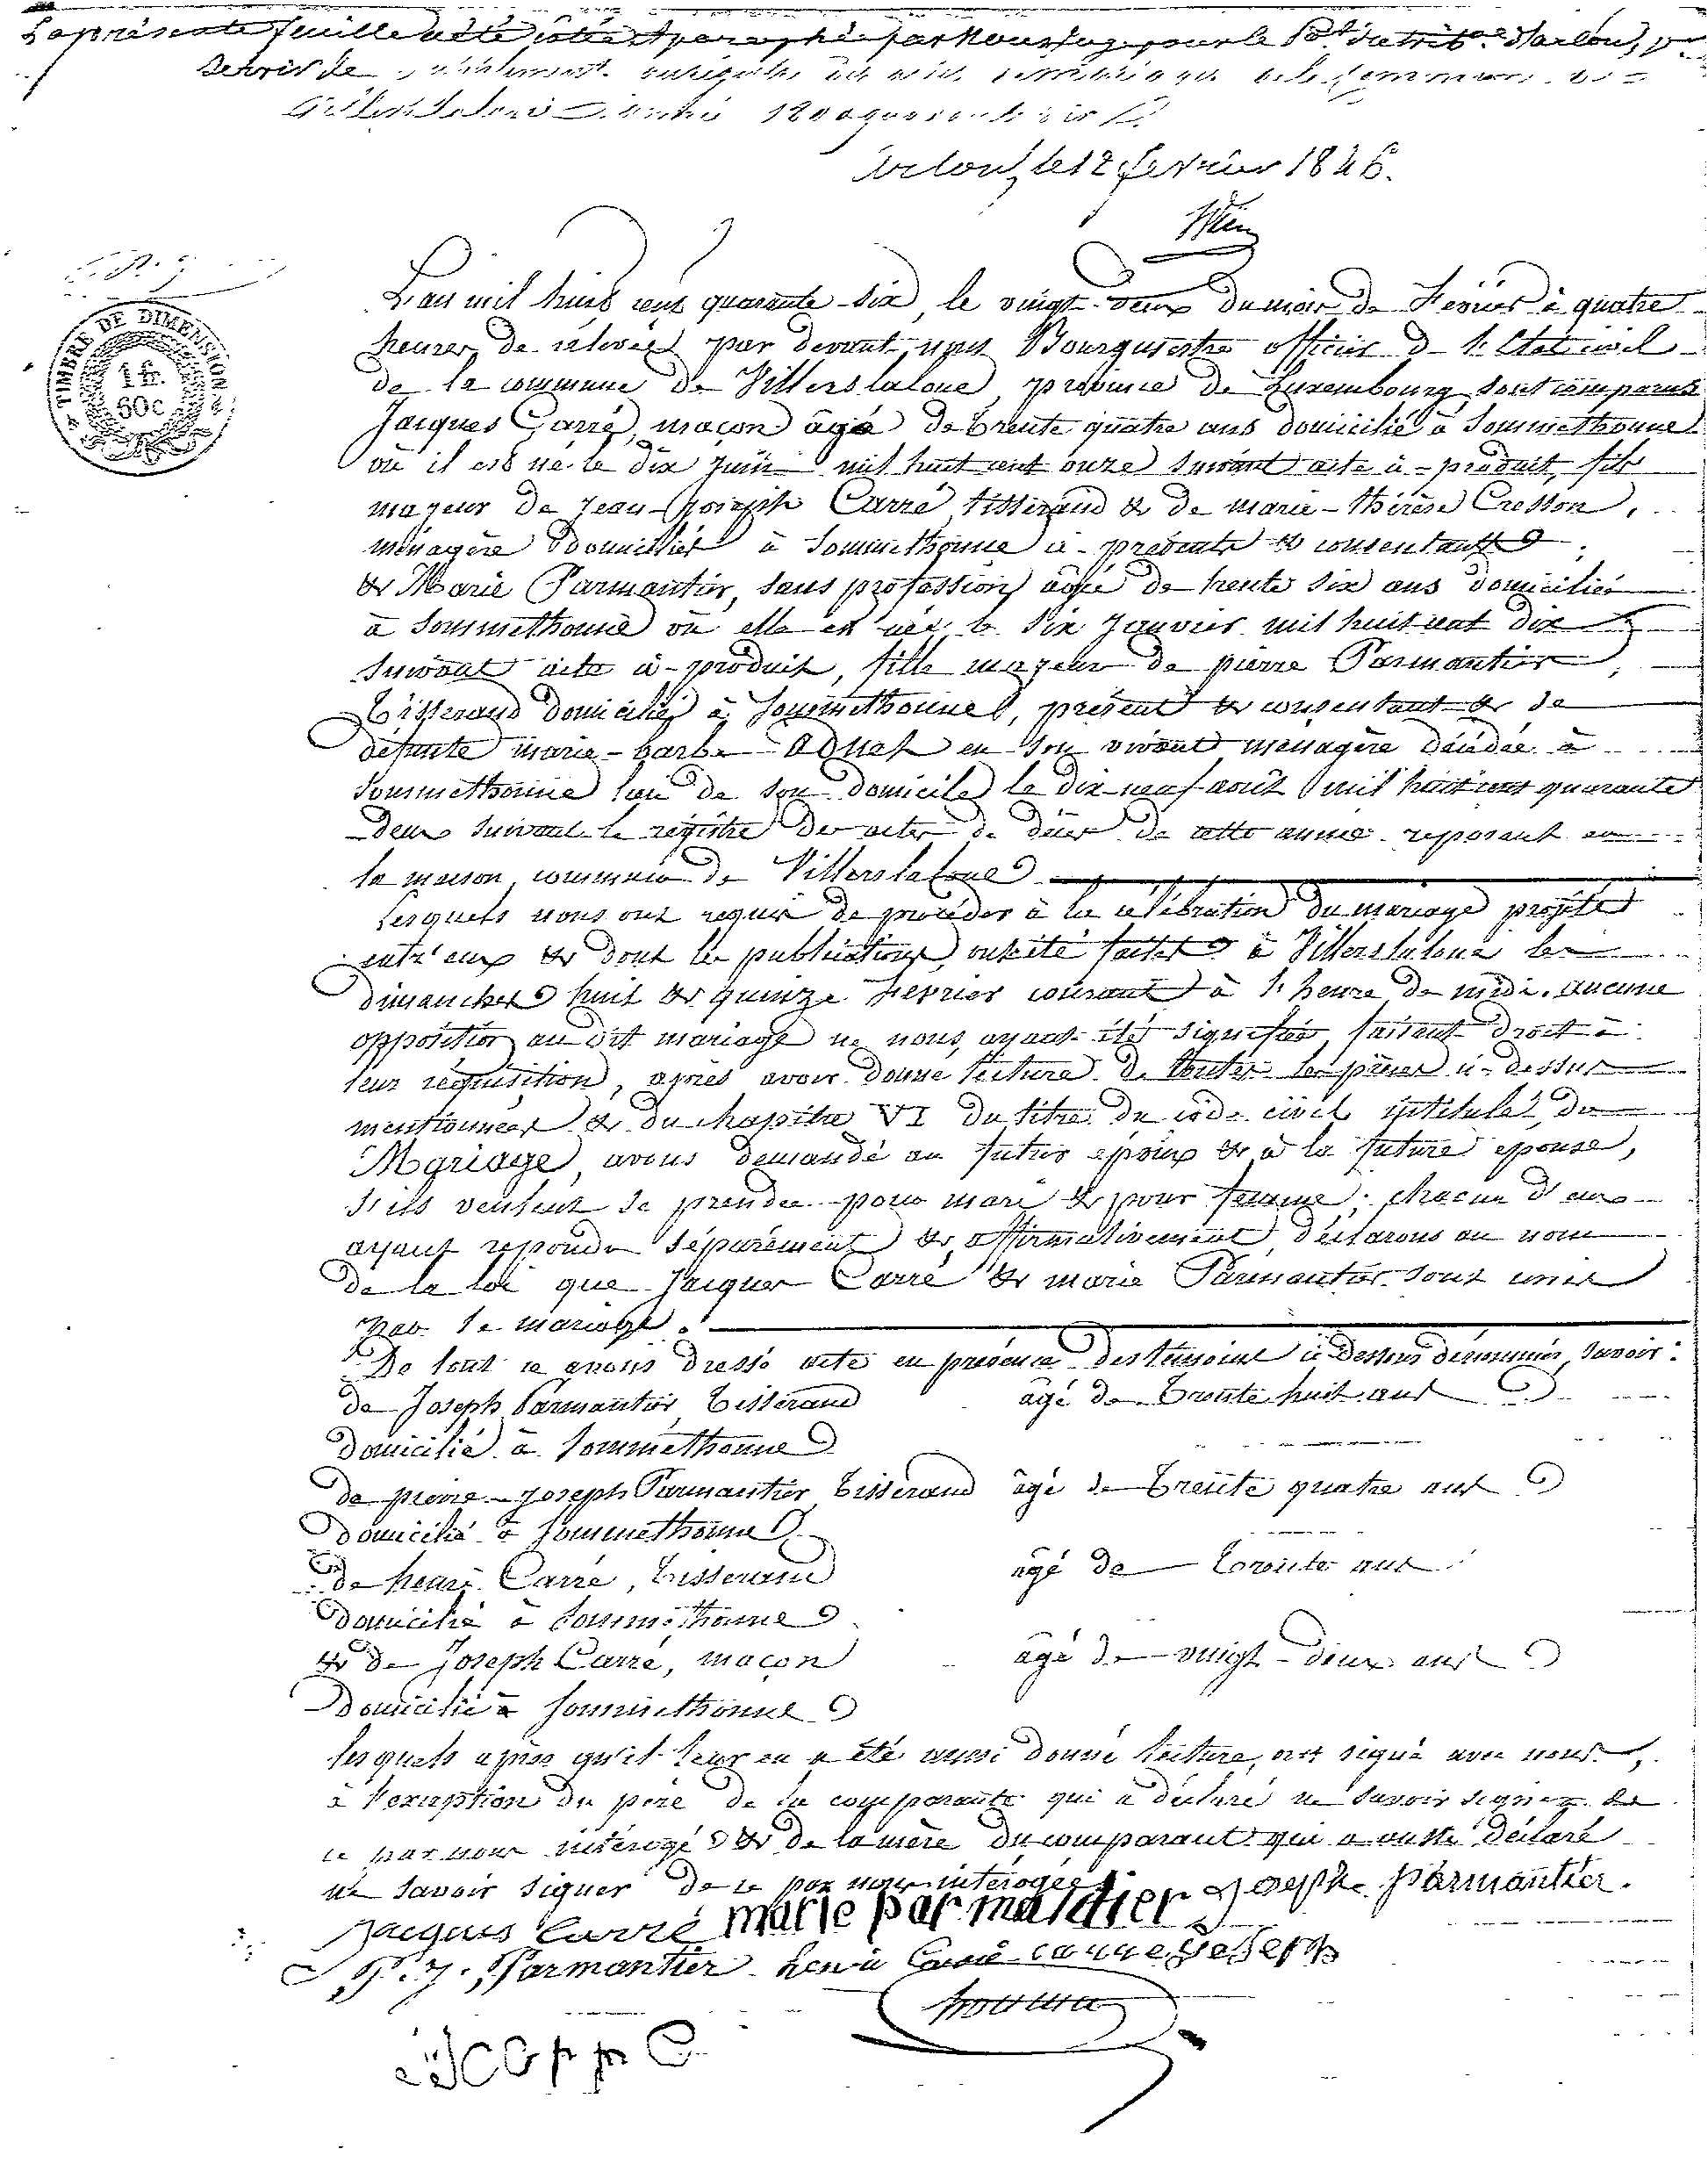 La présente feuille a été côtée et paraphée par Nous juge pour le Pdt du trib. d'Arlon, pr
servir de supplément au registre
Villers-la-loue
Arlon, le 12 février 1846.
N° 7
TIMBRE DE DIMENSION
1 fr.
60c
L'an mil huit cent quarante-six, le vingt-deux du mois de Février à quatre
heures de relevée par devant nous Bourgmestre officier de l'état civil
de la commune de Villerslaloue, province de Luxembourg, sont comparus
Jacques Carré, maçon âgé de trente quatre ans domicilié à Sommethonne
où il est né le dix juin mil huit cent onze suivant acte ci-produit, fils
majeur de Jean-Joseph Carré, tisserand & de marie-thérèse Cresson,
ménagère domiciliés à Sommethonne ci-présents & consentants ;
& Marie Parmantier, sans profession âgée de trente six ans domiciliée
à Sommethonne où elle est née le six Janvier mil huit cent dix
suivant acte ci-produit, fille majeur de pierre Parmantier,
Tisserand domicilié à Sommethonne, présent & consentant & de
défunte marie-barbe Adnet en son vivant ménagère décédée à
Sommethonne lieu de son domicile le dix-neuf août mil huit cent quarante
deux suivant le régistre des actes de décès de cette année reposant en
la maison commune de Villerslaloue
Lesquels nous ont requis de procéder à la célébration du mariage projeté
entr'eux & dont les publications ont été faites à Villerslaloue les
dimanches huit & quinze février courant à l'heure de midi. aucune
opposition au dit mariage ne nous ayant été signifiée, faisant droit à
leur réquisition, après avoir donné lecture de toutes les pièces ci-dessus
mentionnées & du chapitre VI du titre du code civil intitulé du
Mariage, avons demandé au futur époux & à la future epouse,
s'ils veulent se prendre pour mari & pour femme ; chacun d'eux
ayant repondu séparément & affirmativement, déclarons au nom
de la loi que Jacques Carré & marie Parmantier sont unis
par le mariage.
De tout ce avons dressé acte en présence des témoins ci dessous dénommés, savoir :
de Joseph Parmantier, Tisserand âgé de trente huit ans
domicilié à Sommethonne
de pierre-Joseph Parmantier Tisserand âgé de trente quatre ans
domicilié à Sommethonne
de henri Carré, Tisserand âgé de trente ans
domicilié à Sommethonne
& de Joseph Carré, maçon âgé de vingt-deux ans
domicilié à Sommethonne
lesquels après qu'il leur en a été aussi donné lecture, ont signé avec nous,
à l'exception du père de la comparante qui a déclaré ne savoir signer de
ce par nous intérogé & de la mère du comparant qui a aussi déclaré
ne savoir signer de ce par nous intérogée
Jacques Carré marie parmantier Joseph Parmantier.
P. J. Parmantier henri Carré carre Joseph